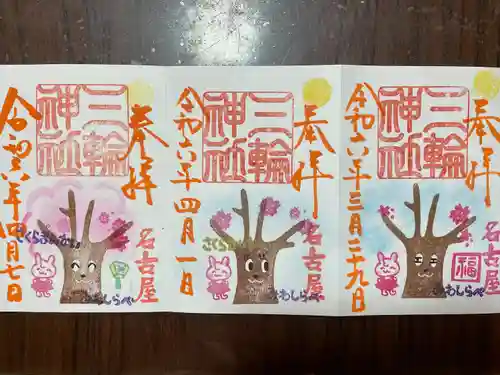 奉拝
三輪神社
名古屋
令和六年三月二十九日
福
みわしらべ
奉拝
三輪神社
名古屋
令和六年四月一日
さくら
みわしらべ
奉拝
三輪神社
名古屋
令和六年四月七日
みわしらべ